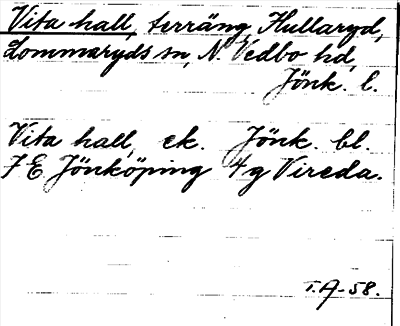 Vita hall, terräng, Hullaryd,
Lommaryds sn, N. Vedbo hd,
Jönk. l.
Vita hall, ek. Jönk. bl.
7 E Jönköping 4g Vireda.
T.A-58.